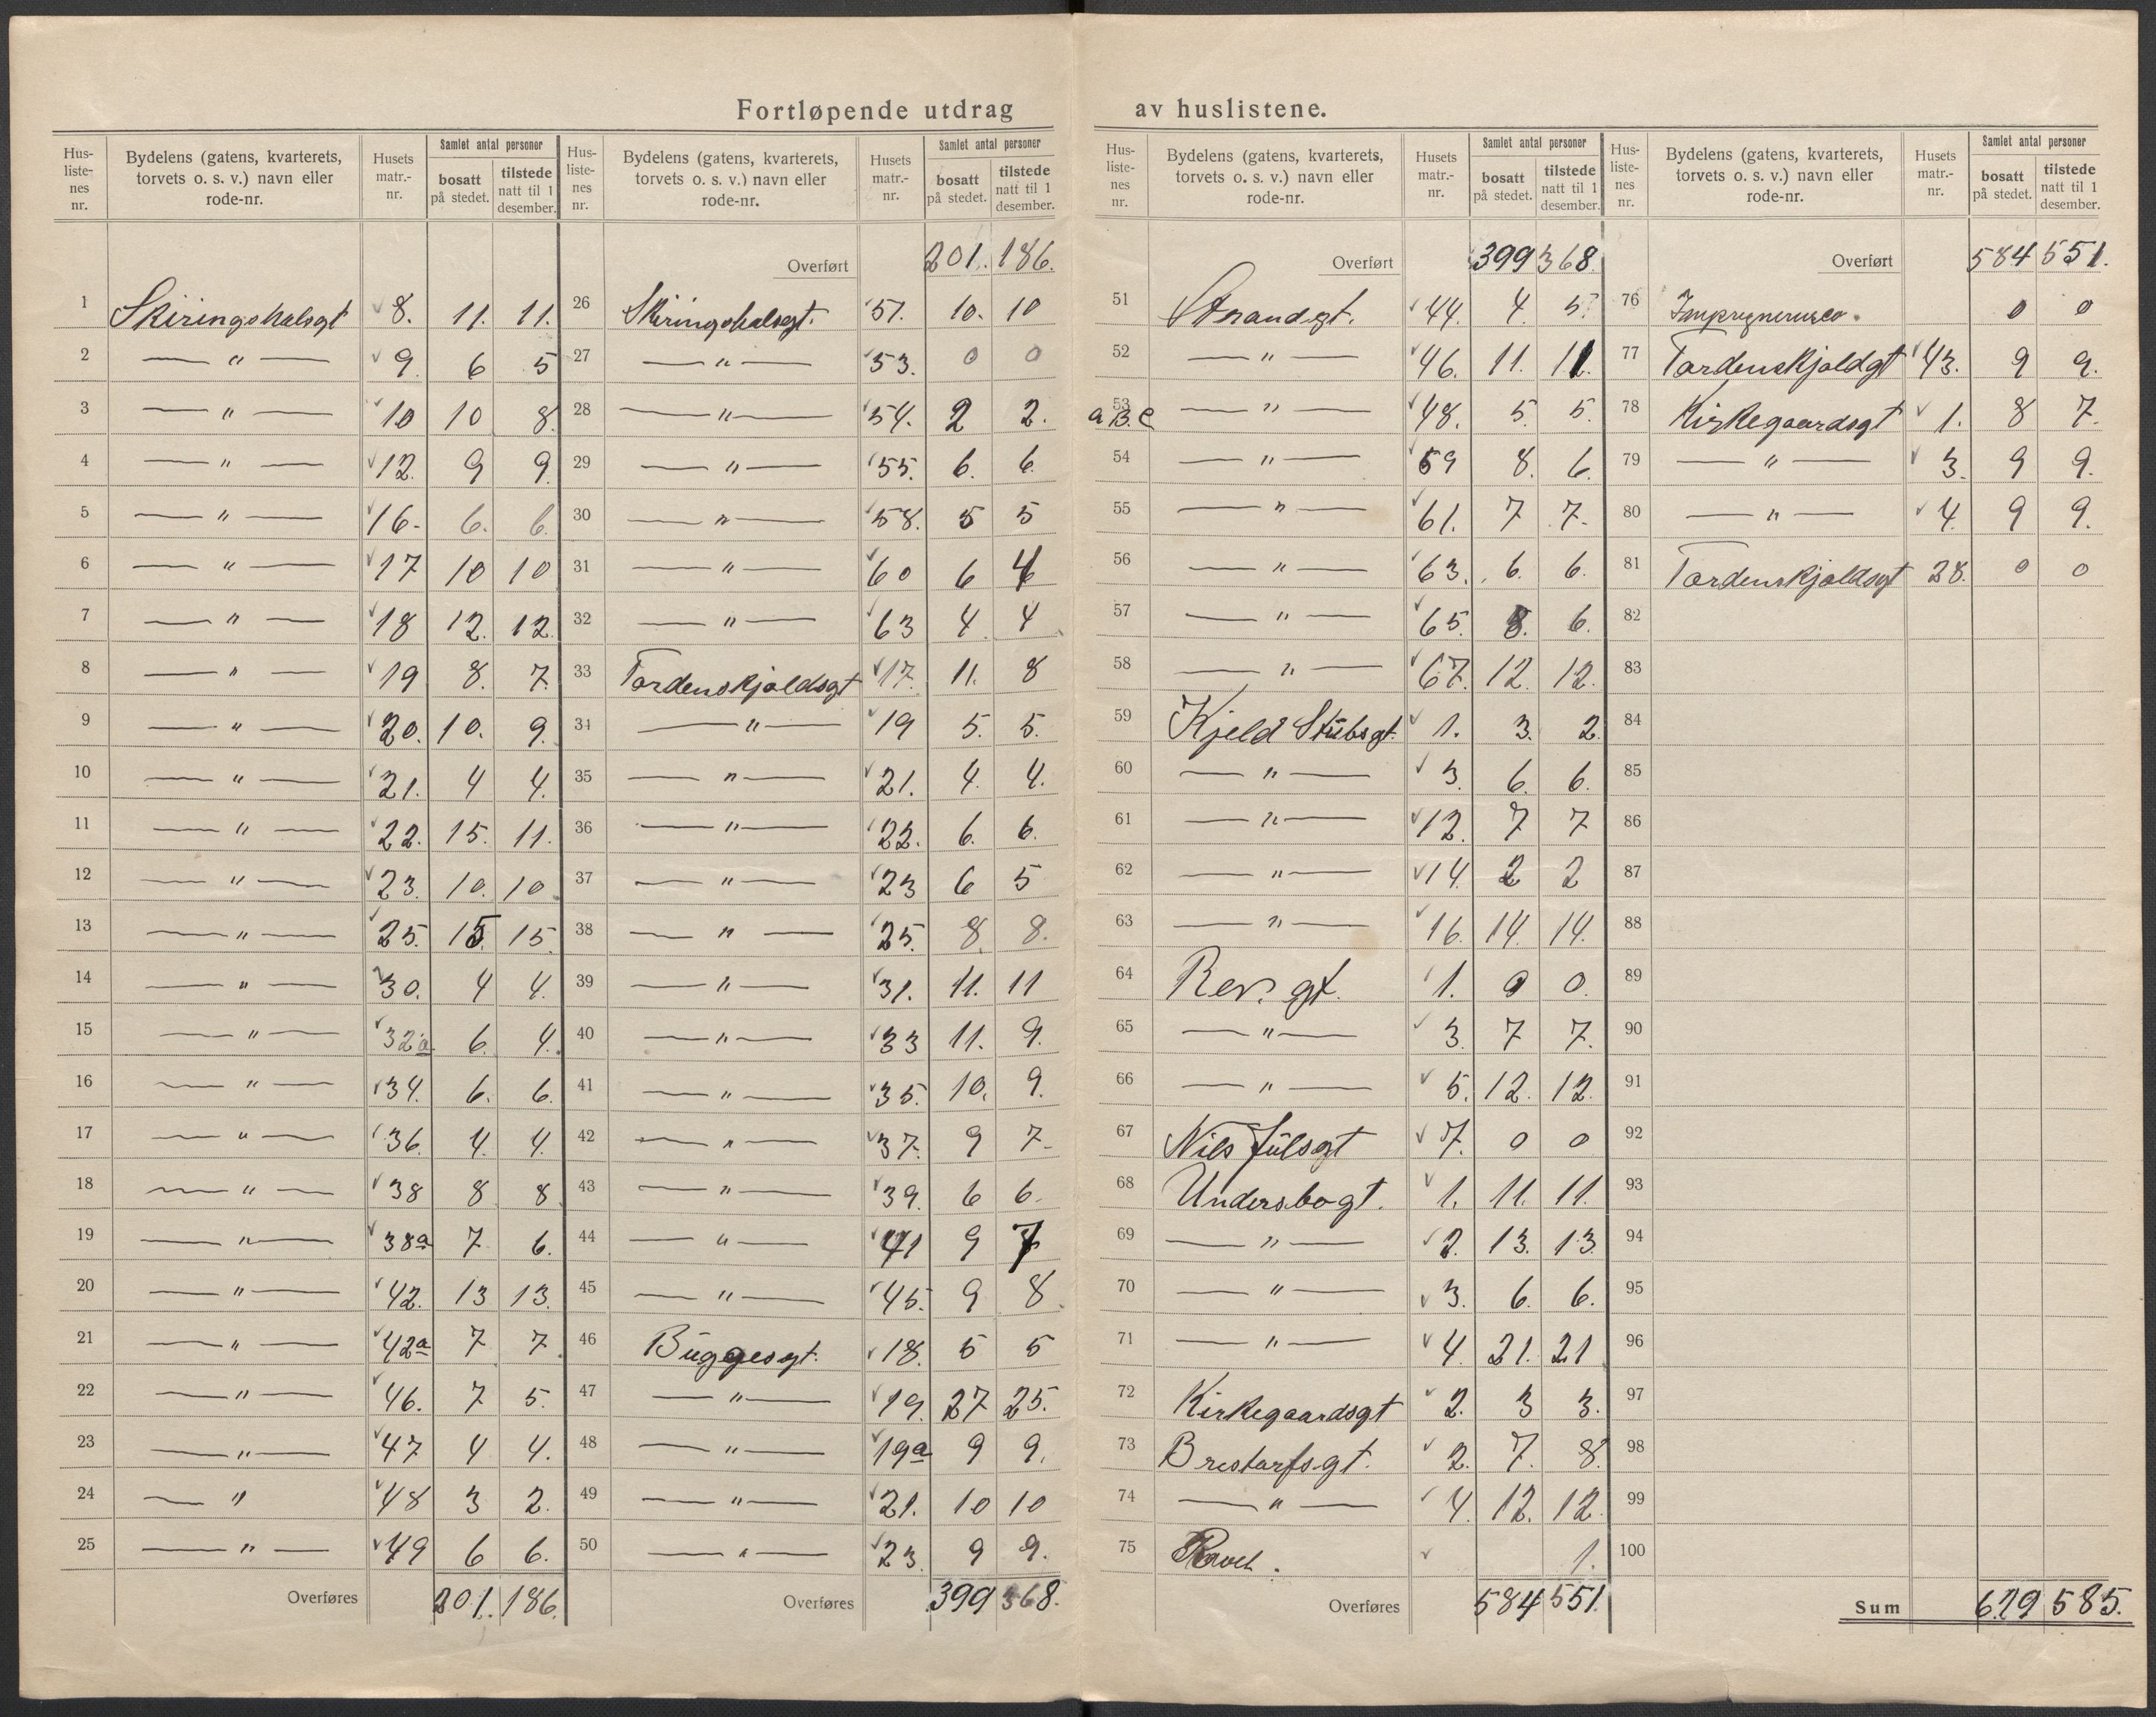 Fortløpende utdrag av huslistene.
Hus-listenes nr. | Bydelens (gatens, kvarterets, torvets o. s. v.) navn eller rode-nr. | Husets matr.-nr. | Samlet antal personer bosatt på stedet. | tilstede natt til 1 desember.
1 Skiringshalsgt 8. 11. 11.
2 — " — 9. 6 5
3 — " — 10 10 8.
4 — " — 12. 9 9.
5 — " — 16. 6. 6.
6 — " — 17 10 10
7 — " — 18 12. 12.
8 — " — 19 8. 7.
9 — " — 20. 10. 9.
10 — " — 21. 4 4.
11 — " — 22. 15. 11.
12 — " — 23. 10. 10
13 — " — 25. 15. 15.
14 — " — 30. 4 4.
15 — " — 32a 6. 4.
16 — " — 34. 6. 6.
17 — " — 36. 4. 4.
18 — " — 38 8 8.
19 — " — 38a 7 6.
20 — " — 42. 13 13.
21 — " — 42a 7 7
22 — " — 46. 7 5.
23 — " — 47 4 4.
24 — " 48 3 2.
25 — " — 49 6 6.
Overføres 201. 186.
Hus-listenes nr. | Bydelens (gatens, kvarterets, torvets o. s. v.) navn eller rode-nr. | Husets matr.-nr. | Samlet antal personer bosatt på stedet. | tilstede natt til 1 desember.
Overført 201. 186.
26 Skiringshalsgt. 51. 10. 10
27 — " — 53. 0 0
28 — " — 54. 2 2.
29 — " — 55. 6. 6.
30 — " — 58. 5 5
31 — " — 60 6 4
32 — " — 63 4 4
33 Tordenskjoldsgt 17. 11. 8
34 — " — 19 5. 5.
35 — " — 21. 4. 4.
36 — " — 22. 6. 6.
37 — " — 23 6 5
38 — " — 25. 8. 8.
39 — " — 31. 11. 11
40 — " — 33 11. 9.
41 — " — 35. 10. 9.
42 — " — 37. 9 7-
43 — " — 39. 6 6.
44 — " — 41 9 7
45 — " — 45. 9 8.
46 Buggesgt. 18. 5 5
47 — " — 19. 27 25.
48 — " — 19a 9 9.
49 — " — 21. 10 10
50 — " — 23. 9 9.
Overføres 399 368.
Hus-listenes nr. | Bydelens (gatens, kvarterets, torvets o. s. v.) navn eller rode-nr. | Husets matr.-nr. | Samlet antal personer bosatt på stedet. | tilstede natt til 1 desember.
Overført 399 368.
51 Strandgt. 44. 4. 5.
52 — " — 46. 11. 11.
53 a.B.C — " — 48. 5. 5.
54 — " — 59 8. 6.
55 — " — 61. 7 7.
56 — " — 63. 6. 6.
57 — " — 65. 8. 6.
58 — " — 67. 12. 12.
59 Kjeld Stubsgt. 1. 3. 2.
60 — " — 3. 6. 6.
61 — " — 12. 7 7
62 — " — 14. 2 2
63 — " — 16. 14. 14.
64 Rev. gt. 1. 0 0.
65 — " — 3. 7 7.
66 — " — 5. 12. 12.
67 Nils Julsgt 7. 0 0
68 Undersbogt. 1. 11. 11.
69 — " — 2. 13. 13.
70 — " — 3. 6. 6.
71 — " — 4. 21. 21
72 Kirkegaardsgt 2. 3 3.
73 Brestorfsgt. 2. 7. 8.
74 — " — 4. 12. 12.
75 1.
Overføres 584 551.
Hus-listenes nr. | Bydelens (gatens, kvarterets, torvets o. s. v.) navn eller rode-nr. | Husets matr.-nr. | Samlet antal personer bosatt på stedet. | tilstede natt til 1 desember.
Overført 584 551.
76 0 0
77 Tordenskjoldgt 43. 9 9.
78 Kirkegaardsgt 1. 8 7.
79 — " — 3. 9 9.
80 — " — 4. 9 9.
81 Tordenskjoldsgt 28. 0 0
82
83
84
85
86
87
88
89
90
91
92
93
94
95
96
97
98
99
100
Sum 619 585.